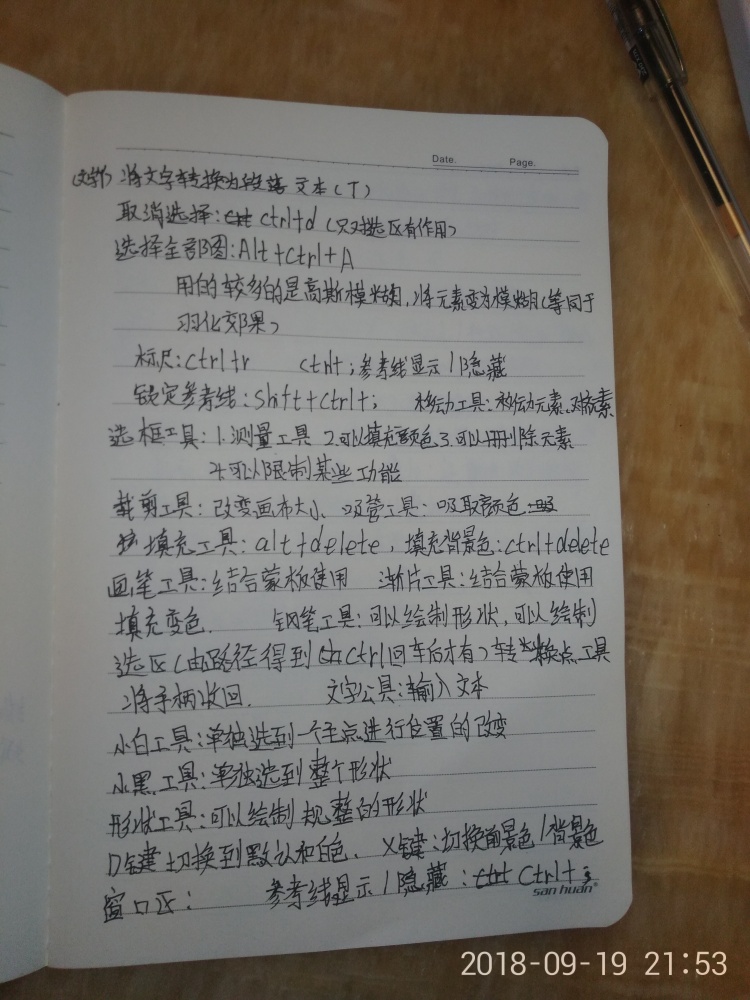 Date. Page.
(文字) 将文字转换为段落文本(T)
取消选择: ctrl+d (只对选区有作用)
选择全部图: Alt+ctrl+A
用的较多的是高斯模糊,将元素变为模糊(等同于
羽化效果)
标尺: ctrl+r ctrl+; 参考线显示/隐藏
锁定参考线: shift+ctrl+; 移动工具: 移动元素、对
选框工具: 1.测量工具 2.可以填充颜色 3.可以删除元素
4.可以限制某些功能
裁剪工具: 改变画布大小、吸管工具: 吸取颜色
填充工具: alt+delete, 填充背景色: ctrl+delete
画笔工具: 结合蒙板使用 渐片工具: 结合蒙板使用
填充变色. 钢笔工具: 可以绘制形状,可以绘制
选区(由路径得到 ctrl回车后才有) 转换点工具
将手柄收回. 文字公具: 输入文本
小白工具: 单独选到一个主点进行位置的改变
小黑工具: 单独选到整个形状
形状工具: 可以绘制规整的形状
D键 切换到默认和白色. X键: 切换前景色/背景色
窗口区: 参考线显示/隐藏: ctrl+;
san huan®
2018-09-19 21:53